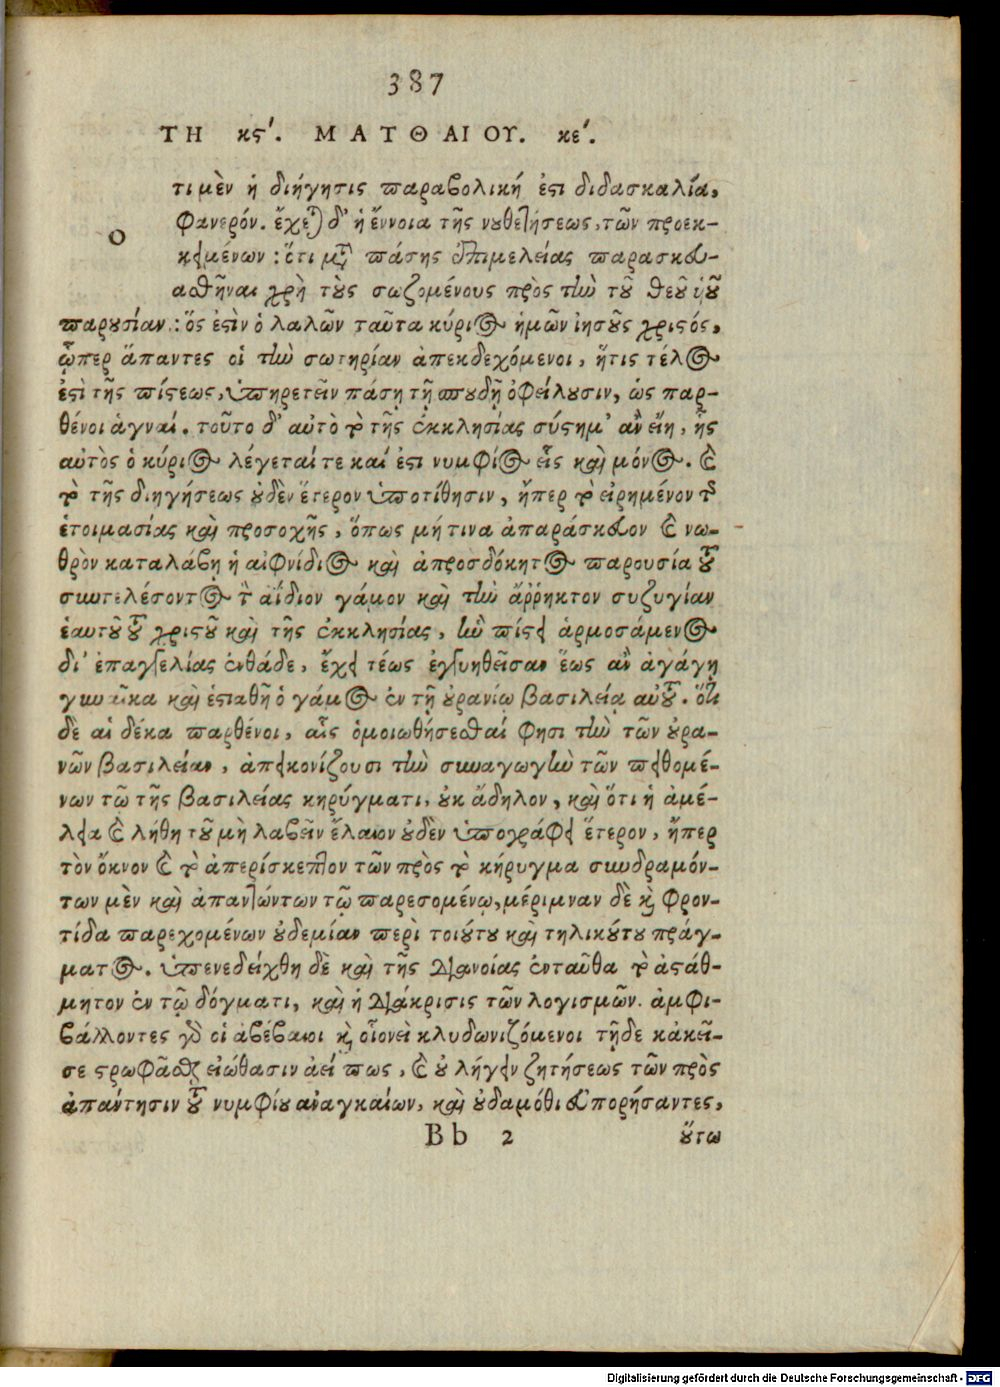 387
ΤΗ κϛʹ. ΜΑΤΘΑΙΟΥ. κεʹ.
Ο
τι μὲν ἡ διήγησις παραβολική ἐστι διδασκαλία,
φανερόν. ἔχει δ' ἡ ἔννοια τῆς νουθετήσεως, τῶν προεκ-
κειμένων : ὅτι μετὰ πάσης ἐπιμελείας παρασκευ-
ασθῆναι χρὴ τοὺς σωζομένους πρὸς τὴν τοῦ θεοῦ υἱοῦ
παρουσίαν : ὅς ἐστιν ὁ λαλῶν ταῦτα κύριος ἡμῶν ἰησοῦς χριστός,
ᾧπερ ἅπαντες οἱ τὴν σωτηρίαν ἀπεκδεχόμενοι, ἥτις τέλος
ἐστὶ τῆς πίστεως, ὑπηρετεῖν πάσῃ τῇ σπουδῇ ὀφείλουσιν, ὡς παρ-
θένοι ἁγναί. τοῦτο δ' αὐτὸ τὸ τῆς ἐκκλησίας σύστημ' ἂν εἴη, ἧς
αὐτὸς ὁ κύριος λέγεταί τε καί ἐστι νυμφίος εἷς καὶ μόνος. καὶ
τὸ τῆς διηγήσεως οὐδὲν ἕτερον ὑποτίθησιν, ἤπερ τὸ εἰρημένον τῆς
ἑτοιμασίας καὶ προσοχῆς, ὅπως μήτινα ἀπαράσκευον καὶ νω-
θρὸν καταλάβῃ ἡ αἰφνίδιος καὶ ἀπροσδόκητος παρουσία τοῦ
συντελέσοντος τὸν ἀΐδιον γάμον καὶ τὴν ἄῤῥηκτον συζυγίαν
ἑαυτοῦ τοῦ χριστοῦ καὶ τῆς ἐκκλησίας, ἣν πίστει ἁρμοσάμενος
δι' ἐπαγγελίας ἐνθάδε, ἔχει τέως ἐγγυηθεῖσαν ἕως ἂν ἀγάγῃ
γυναῖκα καὶ ἑστιαθῇ ὁ γάμος ἐν τῇ οὐρανίῳ βασιλείᾳ αὐτοῦ. ὅτι
δὲ αἱ δέκα παρθένοι, αἷς ὁμοιωθήσεσθαί φησι τὴν τῶν οὐρα-
νῶν βασιλείαν, ἀπεικονίζουσι τὴν συναγωγὴν τῶν πειθομέ-
νων τῶ τῆς βασιλείας κηρύγματι, οὐκ ἄδηλον, καὶ ὅτι ἡ ἀμέ-
λεια καὶ λήθη τοῦ μὴ λαβεῖν ἔλαιον οὐδὲν ὑπογράφει ἕτερον, ἤπερ
τὸν ὄκνον καὶ τὸ ἀπερίσκεπτον τῶν πρὸς τὸ κήρυγμα συνδραμόν-
των μὲν καὶ ἀπαντώντων τῷ παρεσομένῳ, μέριμναν δὲ καὶ φρον-
τίδα παρεχομένων οὐδεμίαν περὶ τοιούτου καὶ τηλικούτου πράγ-
ματος. ὑπενεδείχθη δὲ καὶ τῆς διανοίας ἐνταῦθα τὸ ἀστάθ-
μητον ἐν τῷ δόγματι, καὶ ἡ διάκρισις τῶν λογισμῶν. ἀμφι-
βάλλοντες γὰρ οἱ ἀβέβαιοι καὶ οἱονεὶ κλυδωνιζόμενοι τῇδε κἀκεῖ-
σε στρωφᾶσθαι εἰώθασιν ἀεί πως, καὶ οὐ λήγειν ζητήσεως τῶν πρὸς
ἀπαύτησιν τοῦ νυμφίου ἀναγκαίων, καὶ οὐδαμόθι εὐπορήσαντες,
Bb 2 οὕτω
Digitalisierung gefördert durch die Deutsche Forschungsgemeinschaft - DFG